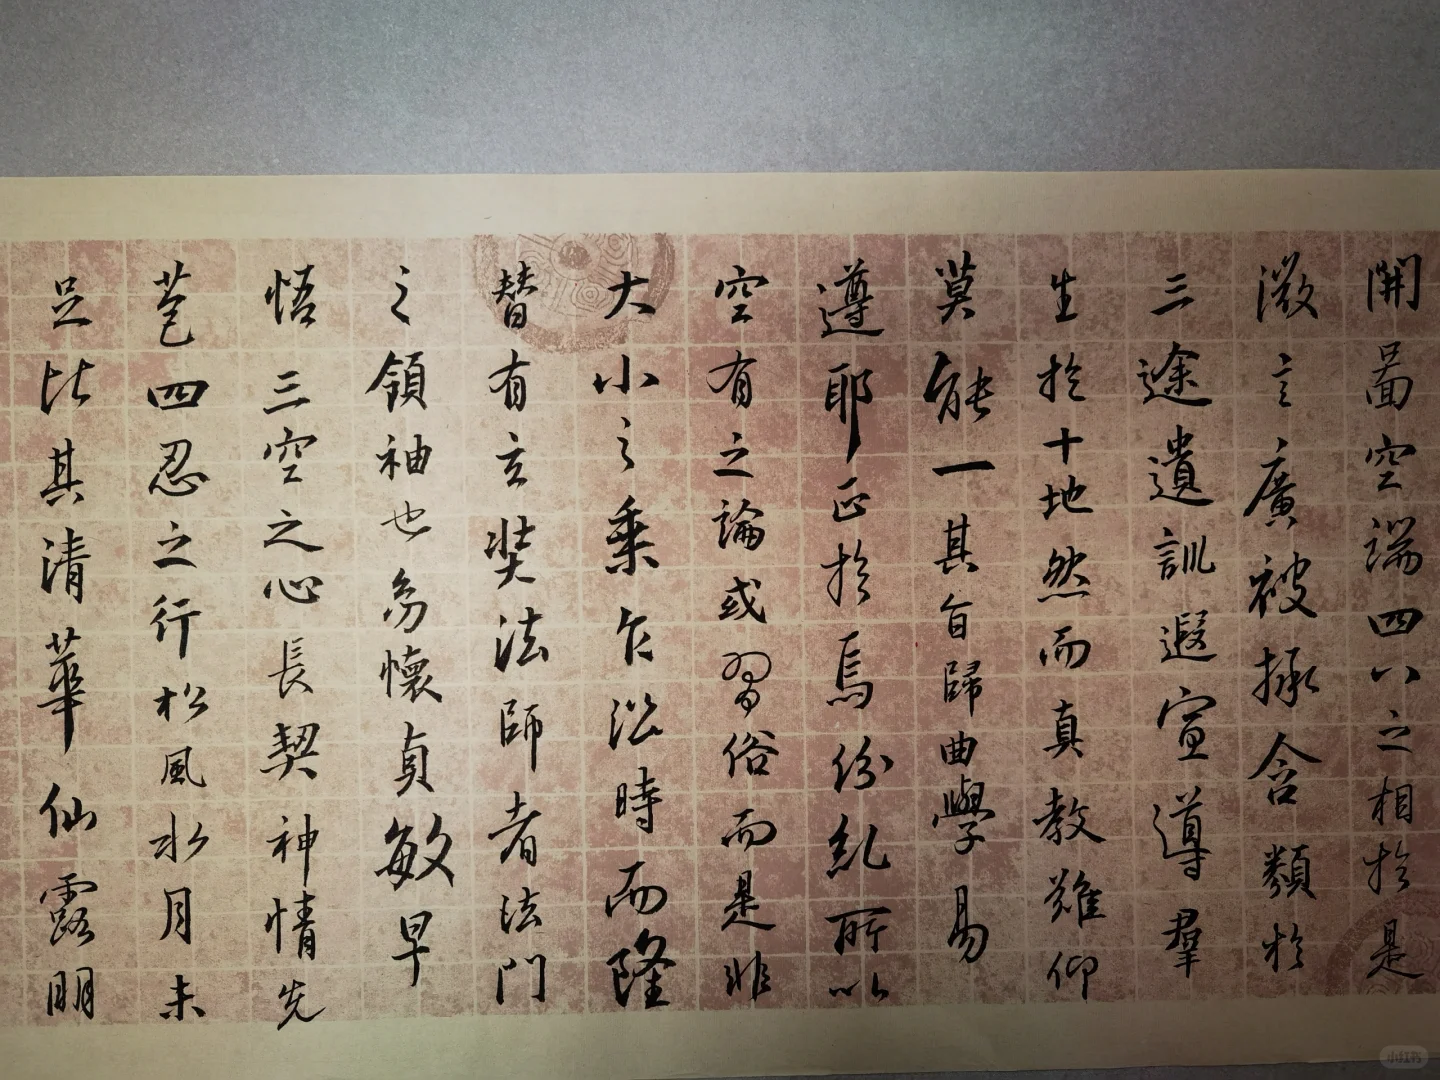 開啚空端四八之相於是
微言廣被拯含類於
三途遺訓遐宣導羣
生於十地然而真教難仰
莫能一其旨歸曲學易
遵耶正於焉紛糺所以
空有之論或習俗而是非
大小之乘乍沿時而隆
替有玄奘法師者法門
之領袖也幼懷貞敏早
悟三空之心長契神情先
苞四忍之行松風水月未
足比其清華仙露明
小红书